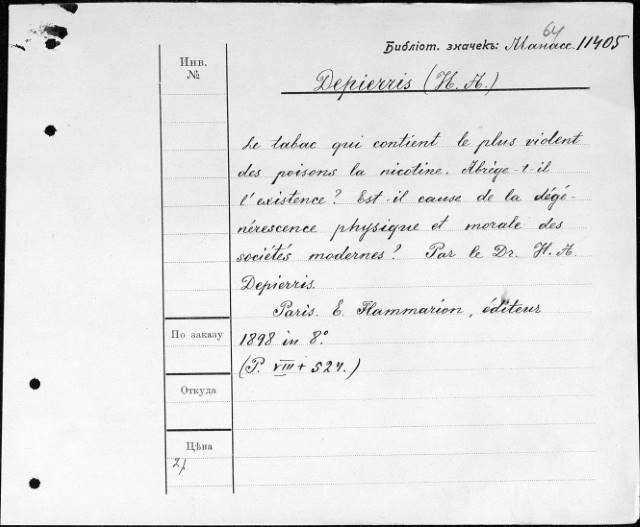 64
Библіот. значекъ: Манасс. 11405
Инв.
№
Depierris (H. A.)
Le tabac qui contient le plus violent
des poisons la nicotine. Abrège-t-il
l'existence? Est-il cause de la dégé-
nérescence physique et morale des
sociétés modernes? Par le Dr. H. A.
Depierris.
Paris. E. Flammarion, éditeur
По заказу
1898 in 8°
(P. VIII + 524.)
Откуда
Цѣна